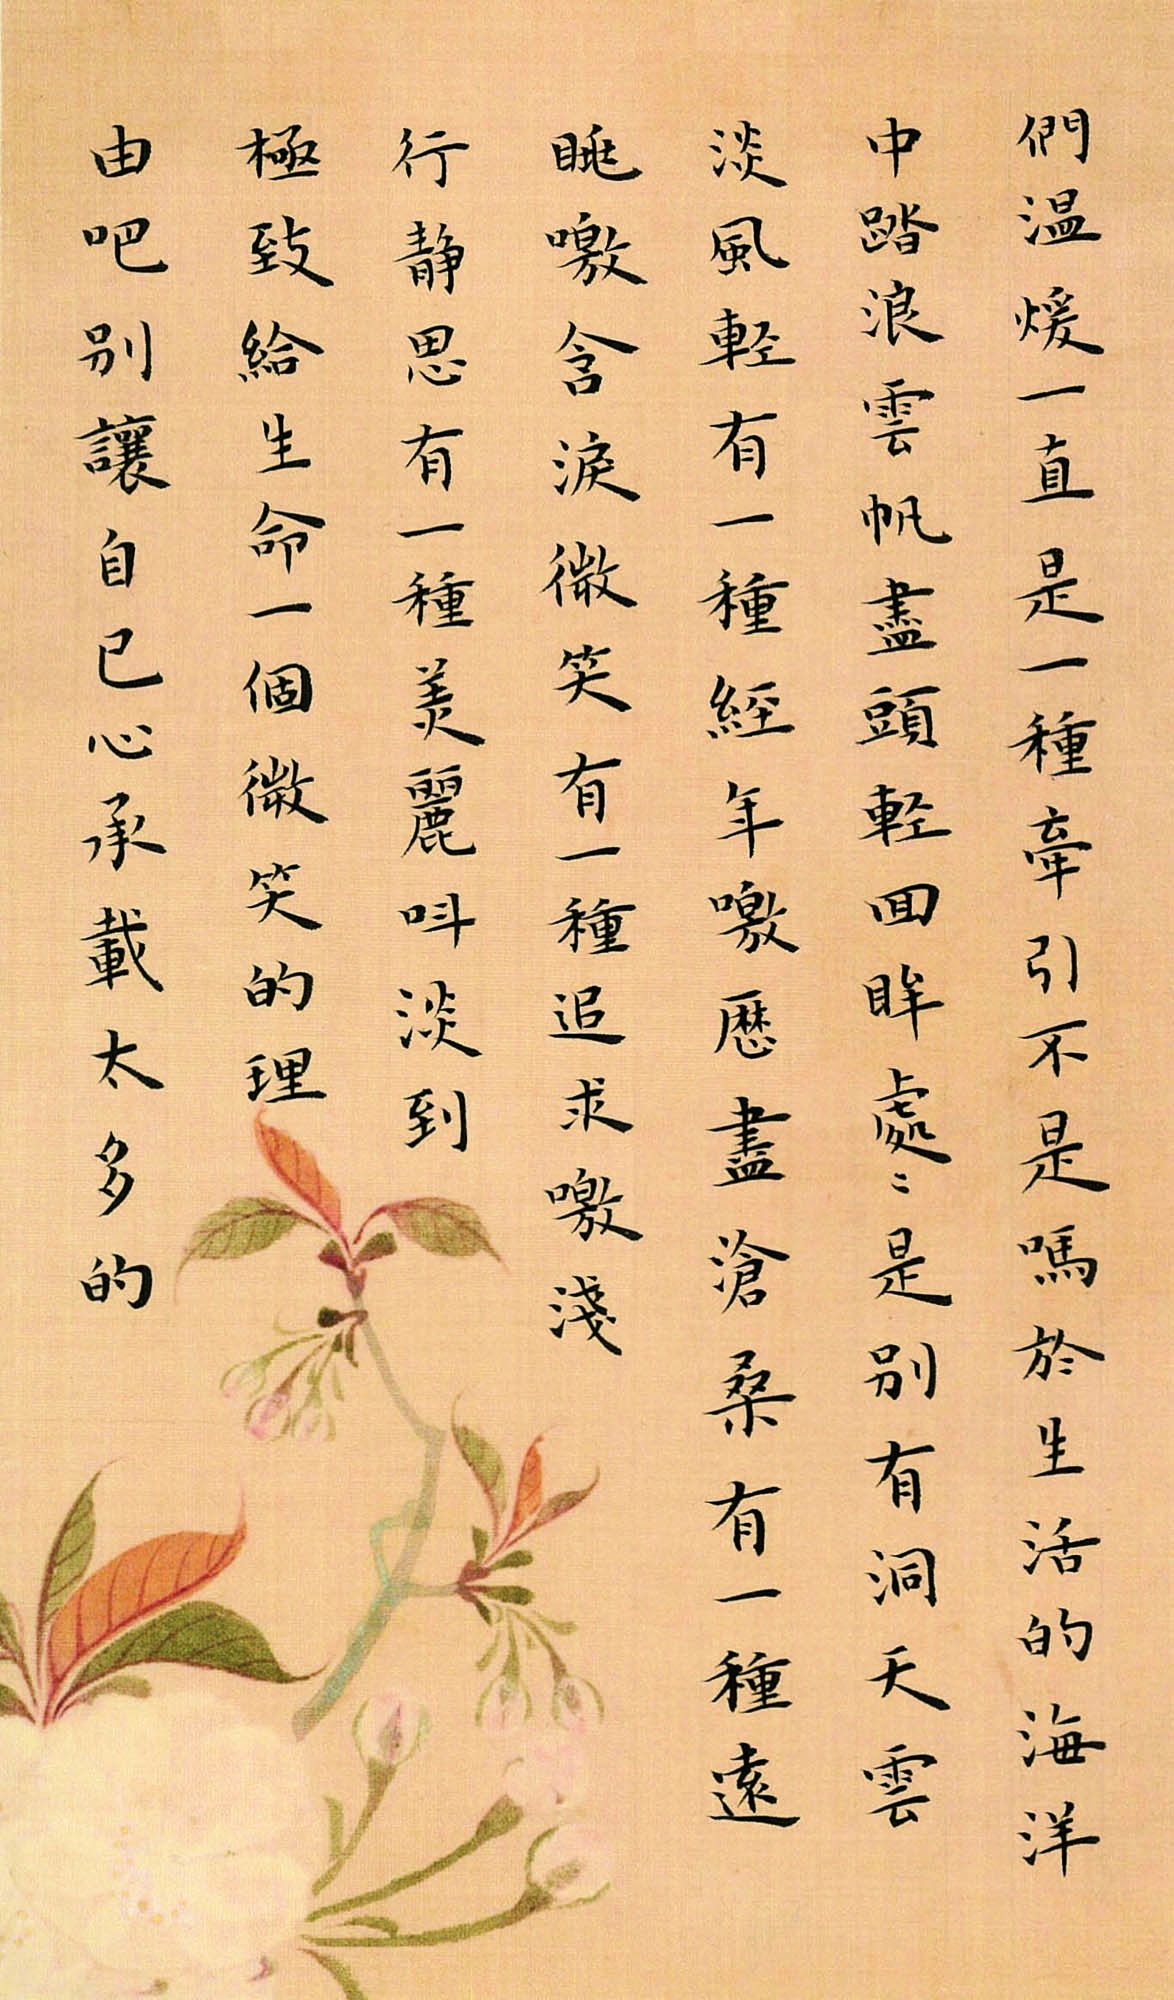 們温煖一直是一種牽引不是嗎於生活的海洋
中踏浪雲帆盡頭輕回眸處〻是別有洞天雲
淡風輕有一種經年噭歷盡滄桑有一種遠
眺噭含淚微笑有一種追求噭淺
行靜思有一種美麗呌淡到
極致給生命一個微笑的理
由吧別讓自己心承載太多的